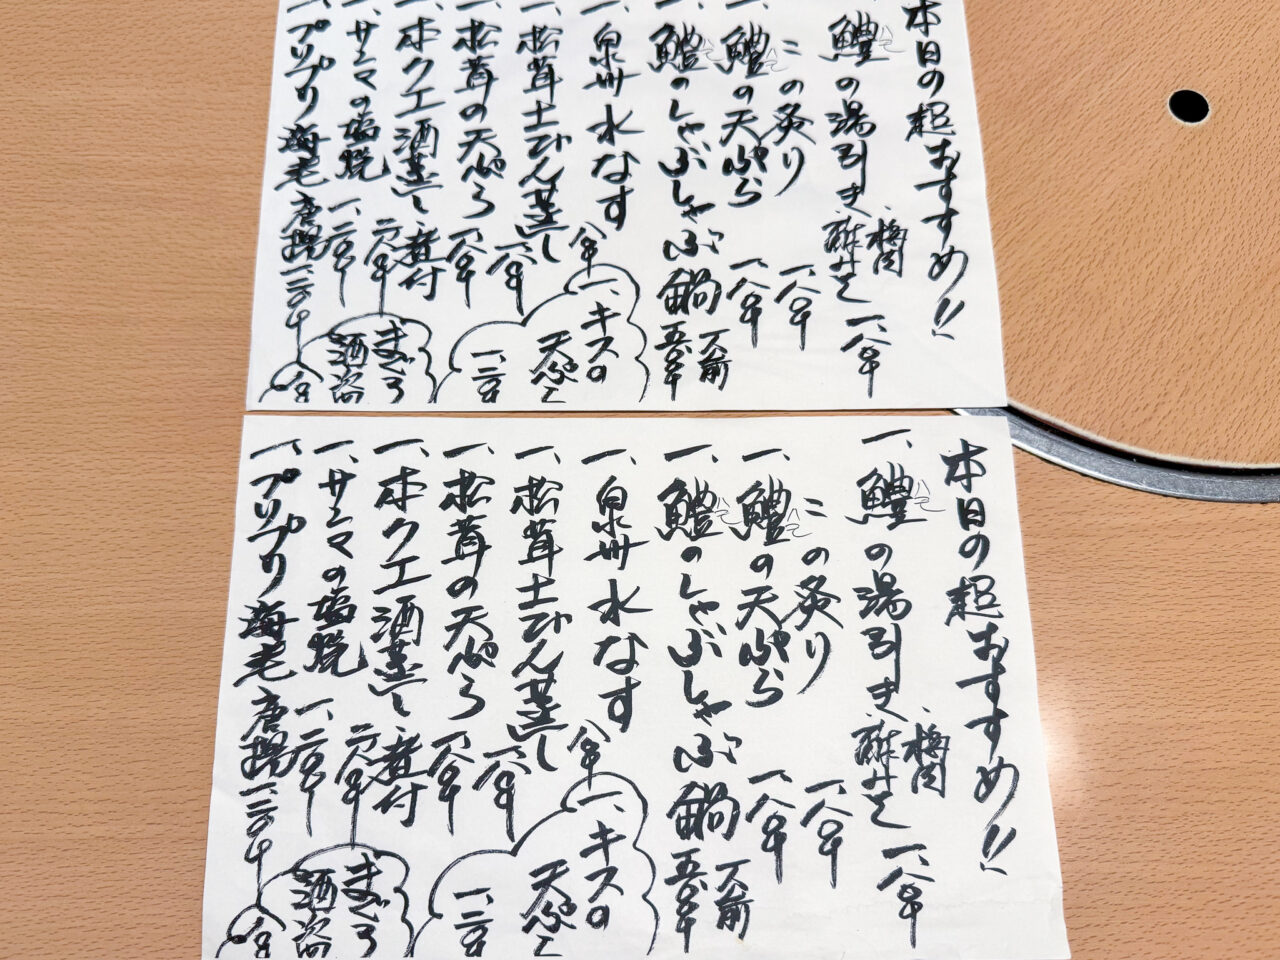 本日の超おすすめ!!
一、鱧の湯引き、梅肉、酢みそ 一、八〇〇
〃の炙り 一、八〇〇
一、鱧の天ぷら 一、八〇〇
一、鱧のしゃぶしゃぶ鍋 一人前
一、泉州水なす 八〇〇
一、松茸土びん蒸し 一、八〇〇
一、松茸の天ぷら 一、八〇〇
一、本クエ酒蒸し、煮付 二、八〇〇
一、サンマの塩焼 一、二〇〇
一、プリプリ海老唐揚 一、二〇〇
一、キスの天ぷら
まぐろ酒盗
本日の超おすすめ!!
一、鱧の湯引き、梅肉、酢みそ 一、八〇〇
〃の炙り 一、八〇〇
一、鱧の天ぷら 一、八〇〇
一、鱧のしゃぶしゃぶ鍋 一人前
一、泉州水なす 八〇〇
一、松茸土びん蒸し 一、八〇〇
一、松茸の天ぷら 一、八〇〇
一、本クエ酒蒸し、煮付 二、八〇〇
一、サンマの塩焼 一、二〇〇
一、プリプリ海老唐揚 一、二〇〇
一、キスの天ぷら
まぐろ酒盗